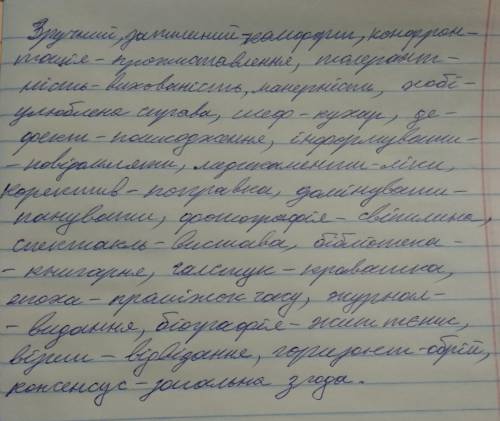 Зручний, затишний - комфорт, конфрон-
тація - протиставлення, толерант-
ність - вихованість, манерність, хобі -
улюблена справа, шеф - кухар, де-
фект - пошкодження, інформувати -
- повідомляти, медикаменти - ліки,
коректив - поправка, домінувати -
панувати, фотографія - світлина,
спектакль - вистава, бібліотека -
- книгарня, галстук - краватка,
епоха - проміжок часу, журнал -
- видання, біографія - життєпис,
візит - відвідання, горизонт - обрій,
консенсус - загальна згода.